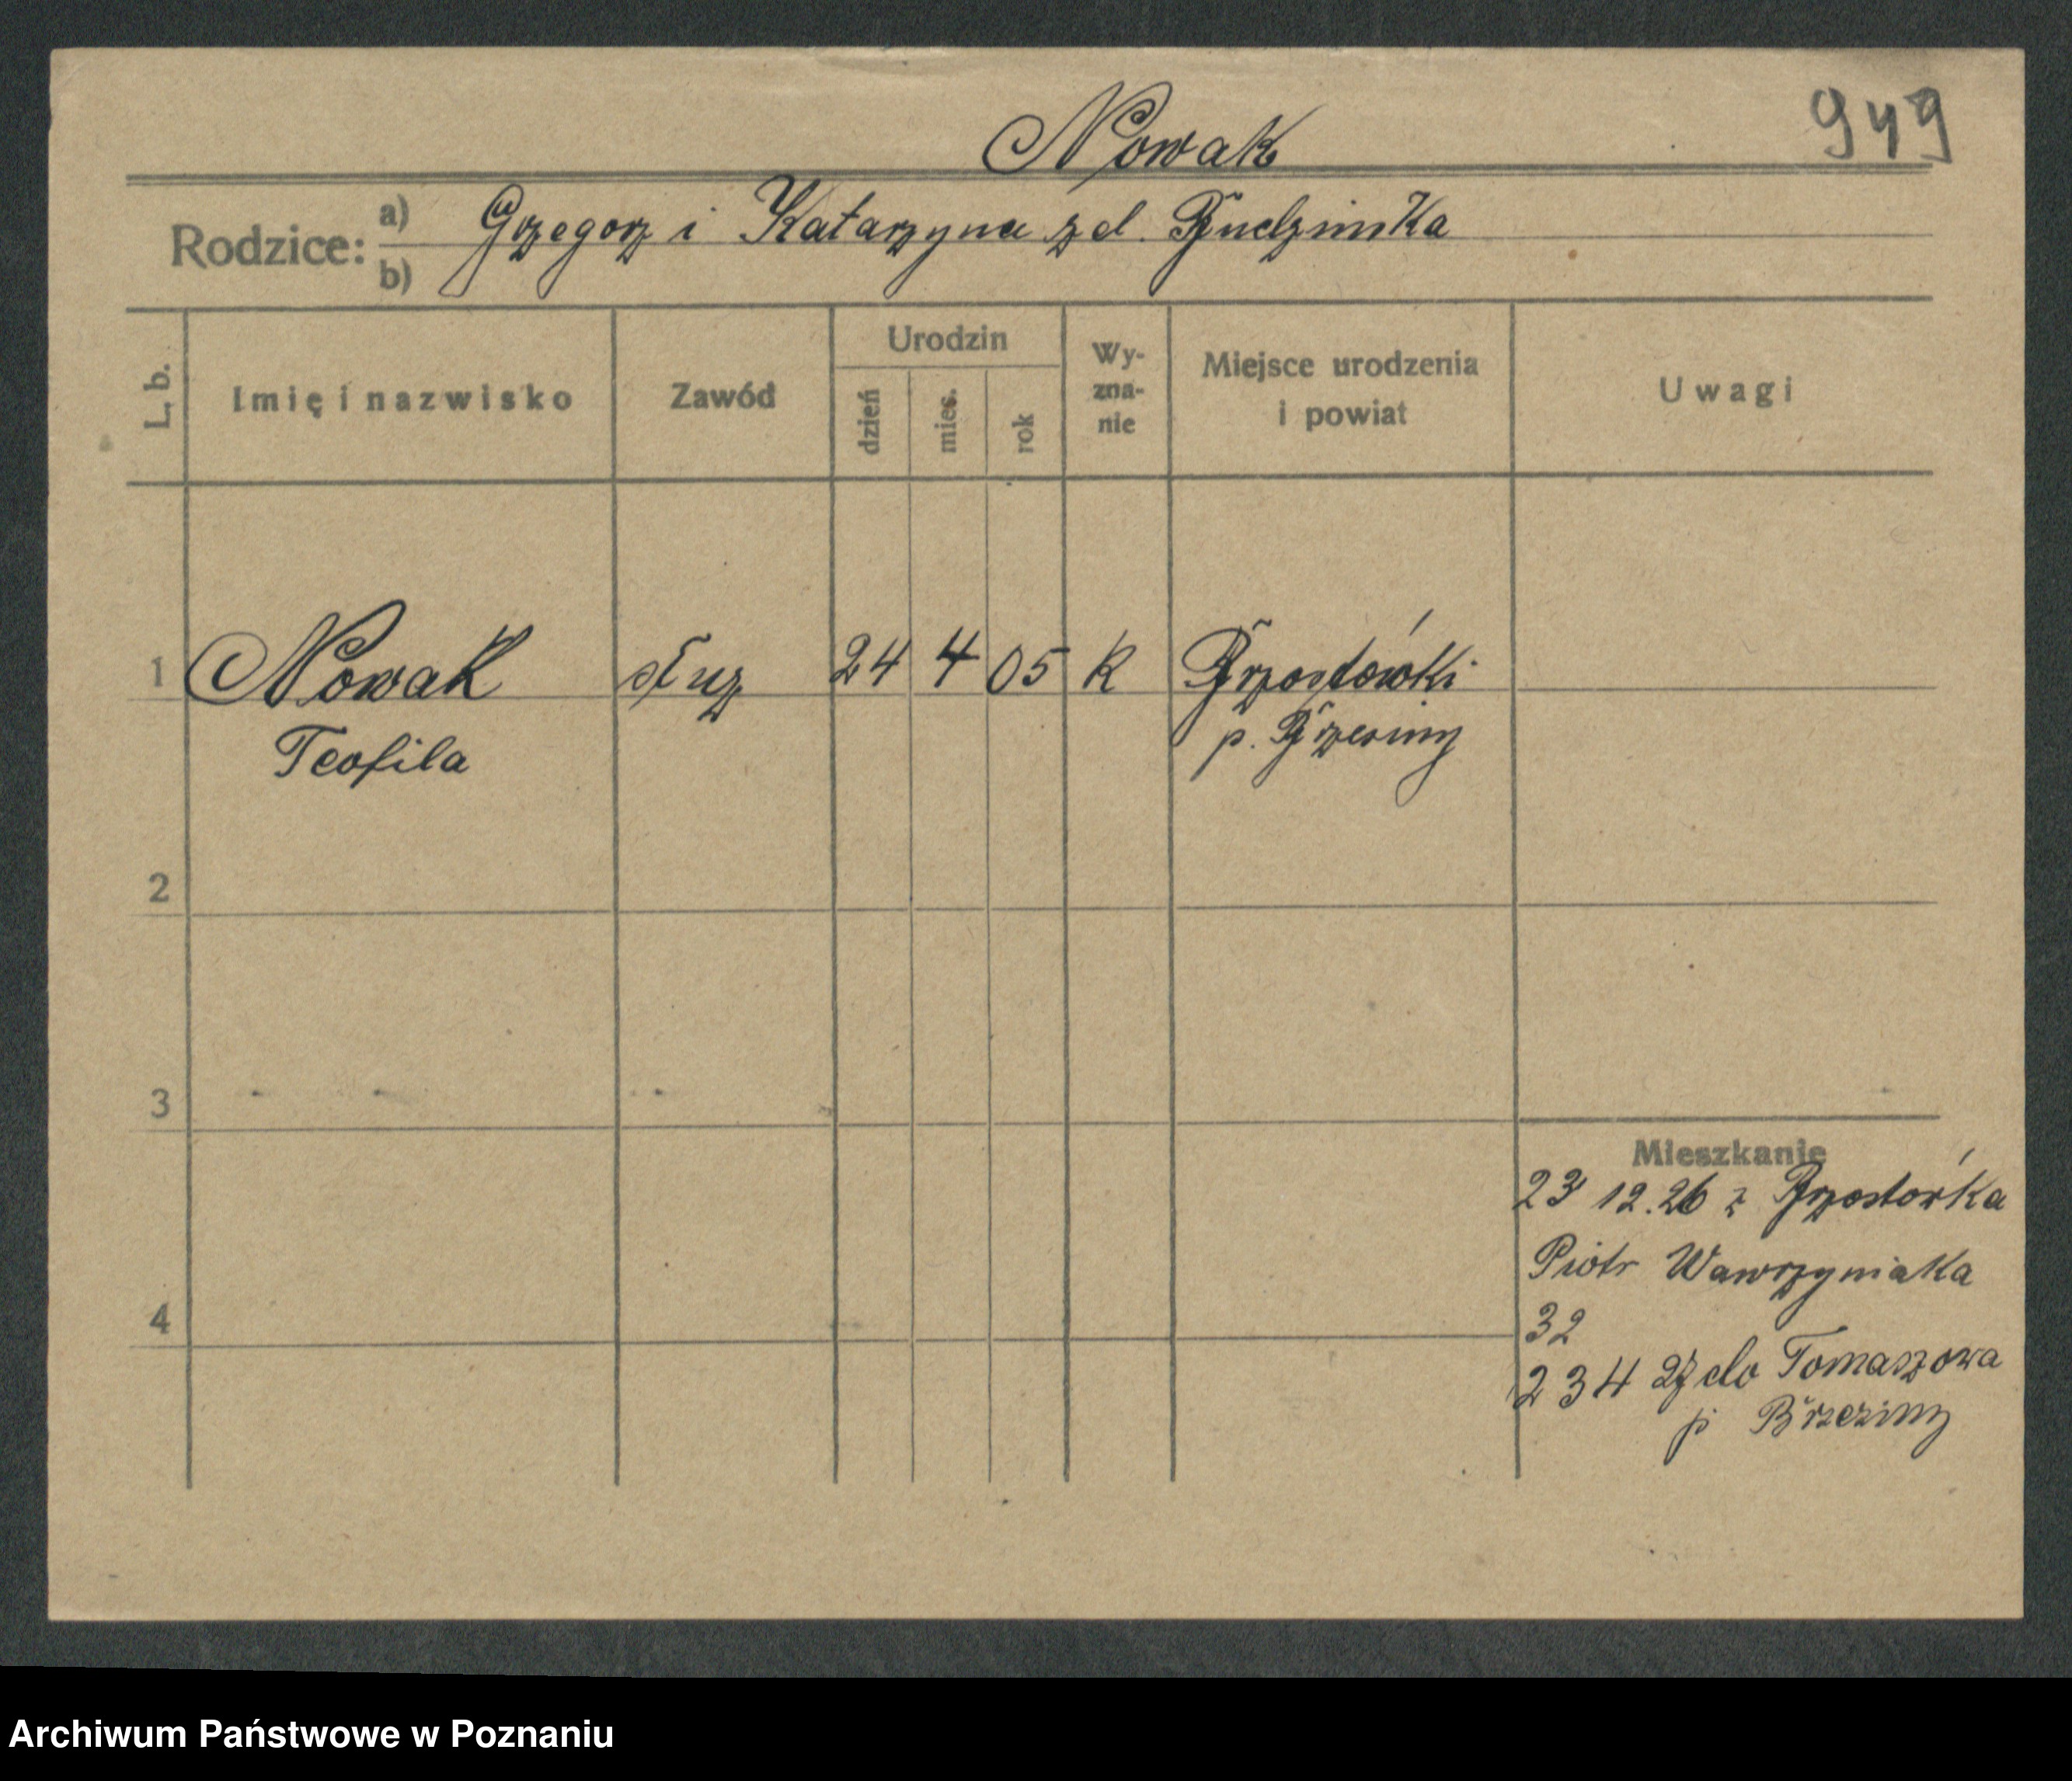 Nowak
949
Rodzice: a) Grzegorz i Katarzyna z d. Budzinska
b)
L. b. Imię i nazwisko Zawód Urodzin dzień mies. rok Wy-zna-nie Miejsce urodzenia i powiat Uwagi
1 Nowak służ 24 4 05 k Brzostówki
Teofila p. Brzeziny
2
3
Mieszkanie
23 12.26 z Brzostówka
Piotr Wawrzyniaka
4 32
23 4 27 do Tomaszowa
p Brzeziny
Archiwum Państwowe w Poznaniu